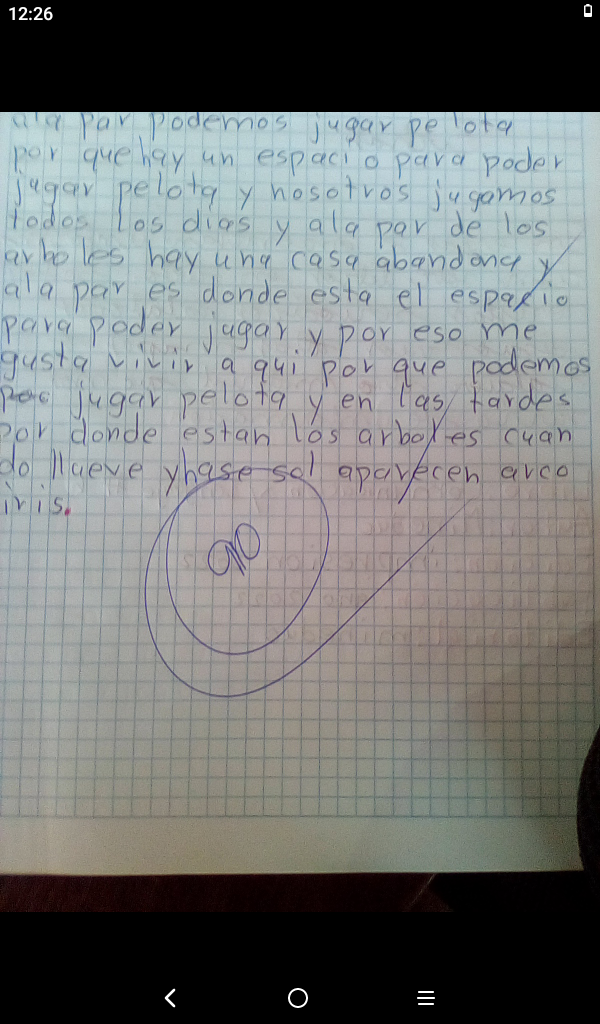 12:26
ala par podemos jugar pelota
por que hay un espacio para poder
jugar pelota y nosotros jugamos
todos los dias y ala par de los
arboles hay una casa abandona y
ala par es donde esta el espacio
para poder jugar y por eso me
gusta vivir a qui por que podemos
jugar pelota y en las tardes
por donde estan los arboles cuan
do llueve yhase sol aparecen arco
iris.